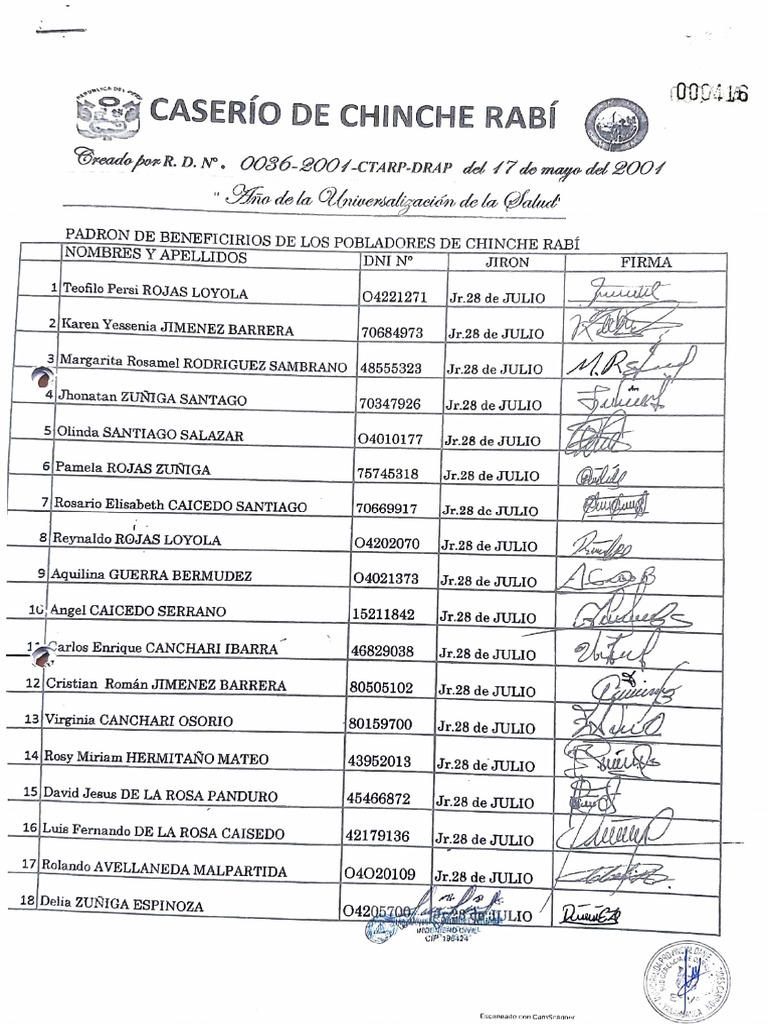 000416
REPUBLICA DEL PERU
CASERÍO DE CHINCHE RABÍ
Creado por R. D. Nº. 0036-2001-CTARP-DRAP del 17 de mayo del 2001
"Año de la Universalización de la Salud"
PADRON DE BENEFICIRIOS DE LOS POBLADORES DE CHINCHE RABÍ
NOMBRES Y APELLIDOS DNI Nº JIRON FIRMA
1 Teofilo Persi ROJAS LOYOLA O4221271 Jr.28 de JULIO
2 Karen Yessenia JIMENEZ BARRERA 70684973 Jr.28 de JULIO
3 Margarita Rosamel RODRIGUEZ SAMBRANO 48555323 Jr.28 de JULIO
4 Jhonatan ZUÑIGA SANTAGO 70347926 Jr.28 de JULIO
5 Olinda SANTIAGO SALAZAR O4010177 Jr.28 de JULIO
6 Pamela ROJAS ZUÑIGA 75745318 Jr.28 de JULIO
7 Rosario Elisabeth CAICEDO SANTIAGO 70669917 Jr.28 de JULIO
8 Reynaldo ROJAS LOYOLA O4202070 Jr.28 de JULIO
9 Aquilina GUERRA BERMUDEZ O4021373 Jr.28 de JULIO
10 Angel CAICEDO SERRANO 15211842 Jr.28 de JULIO
11 Carlos Enrique CANCHARI IBARRA 46829038 Jr.28 de JULIO
12 Cristian Román JIMENEZ BARRERA 80505102 Jr.28 de JULIO
13 Virginia CANCHARI OSORIO 80159700 Jr.28 de JULIO
14 Rosy Miriam HERMITAÑO MATEO 43952013 Jr.28 de JULIO
15 David Jesus DE LA ROSA PANDURO 45466872 Jr.28 de JULIO
16 Luis Fernando DE LA ROSA CAISEDO 42179136 Jr.28 de JULIO
17 Rolando AVELLANEDA MALPARTIDA O4O20109 Jr.28 de JULIO
18 Delia ZUÑIGA ESPINOZA O4205700 Jr.28 de JULIO
INGENIERO CIVIL
CIP 196424
Escaneado con CamScanner